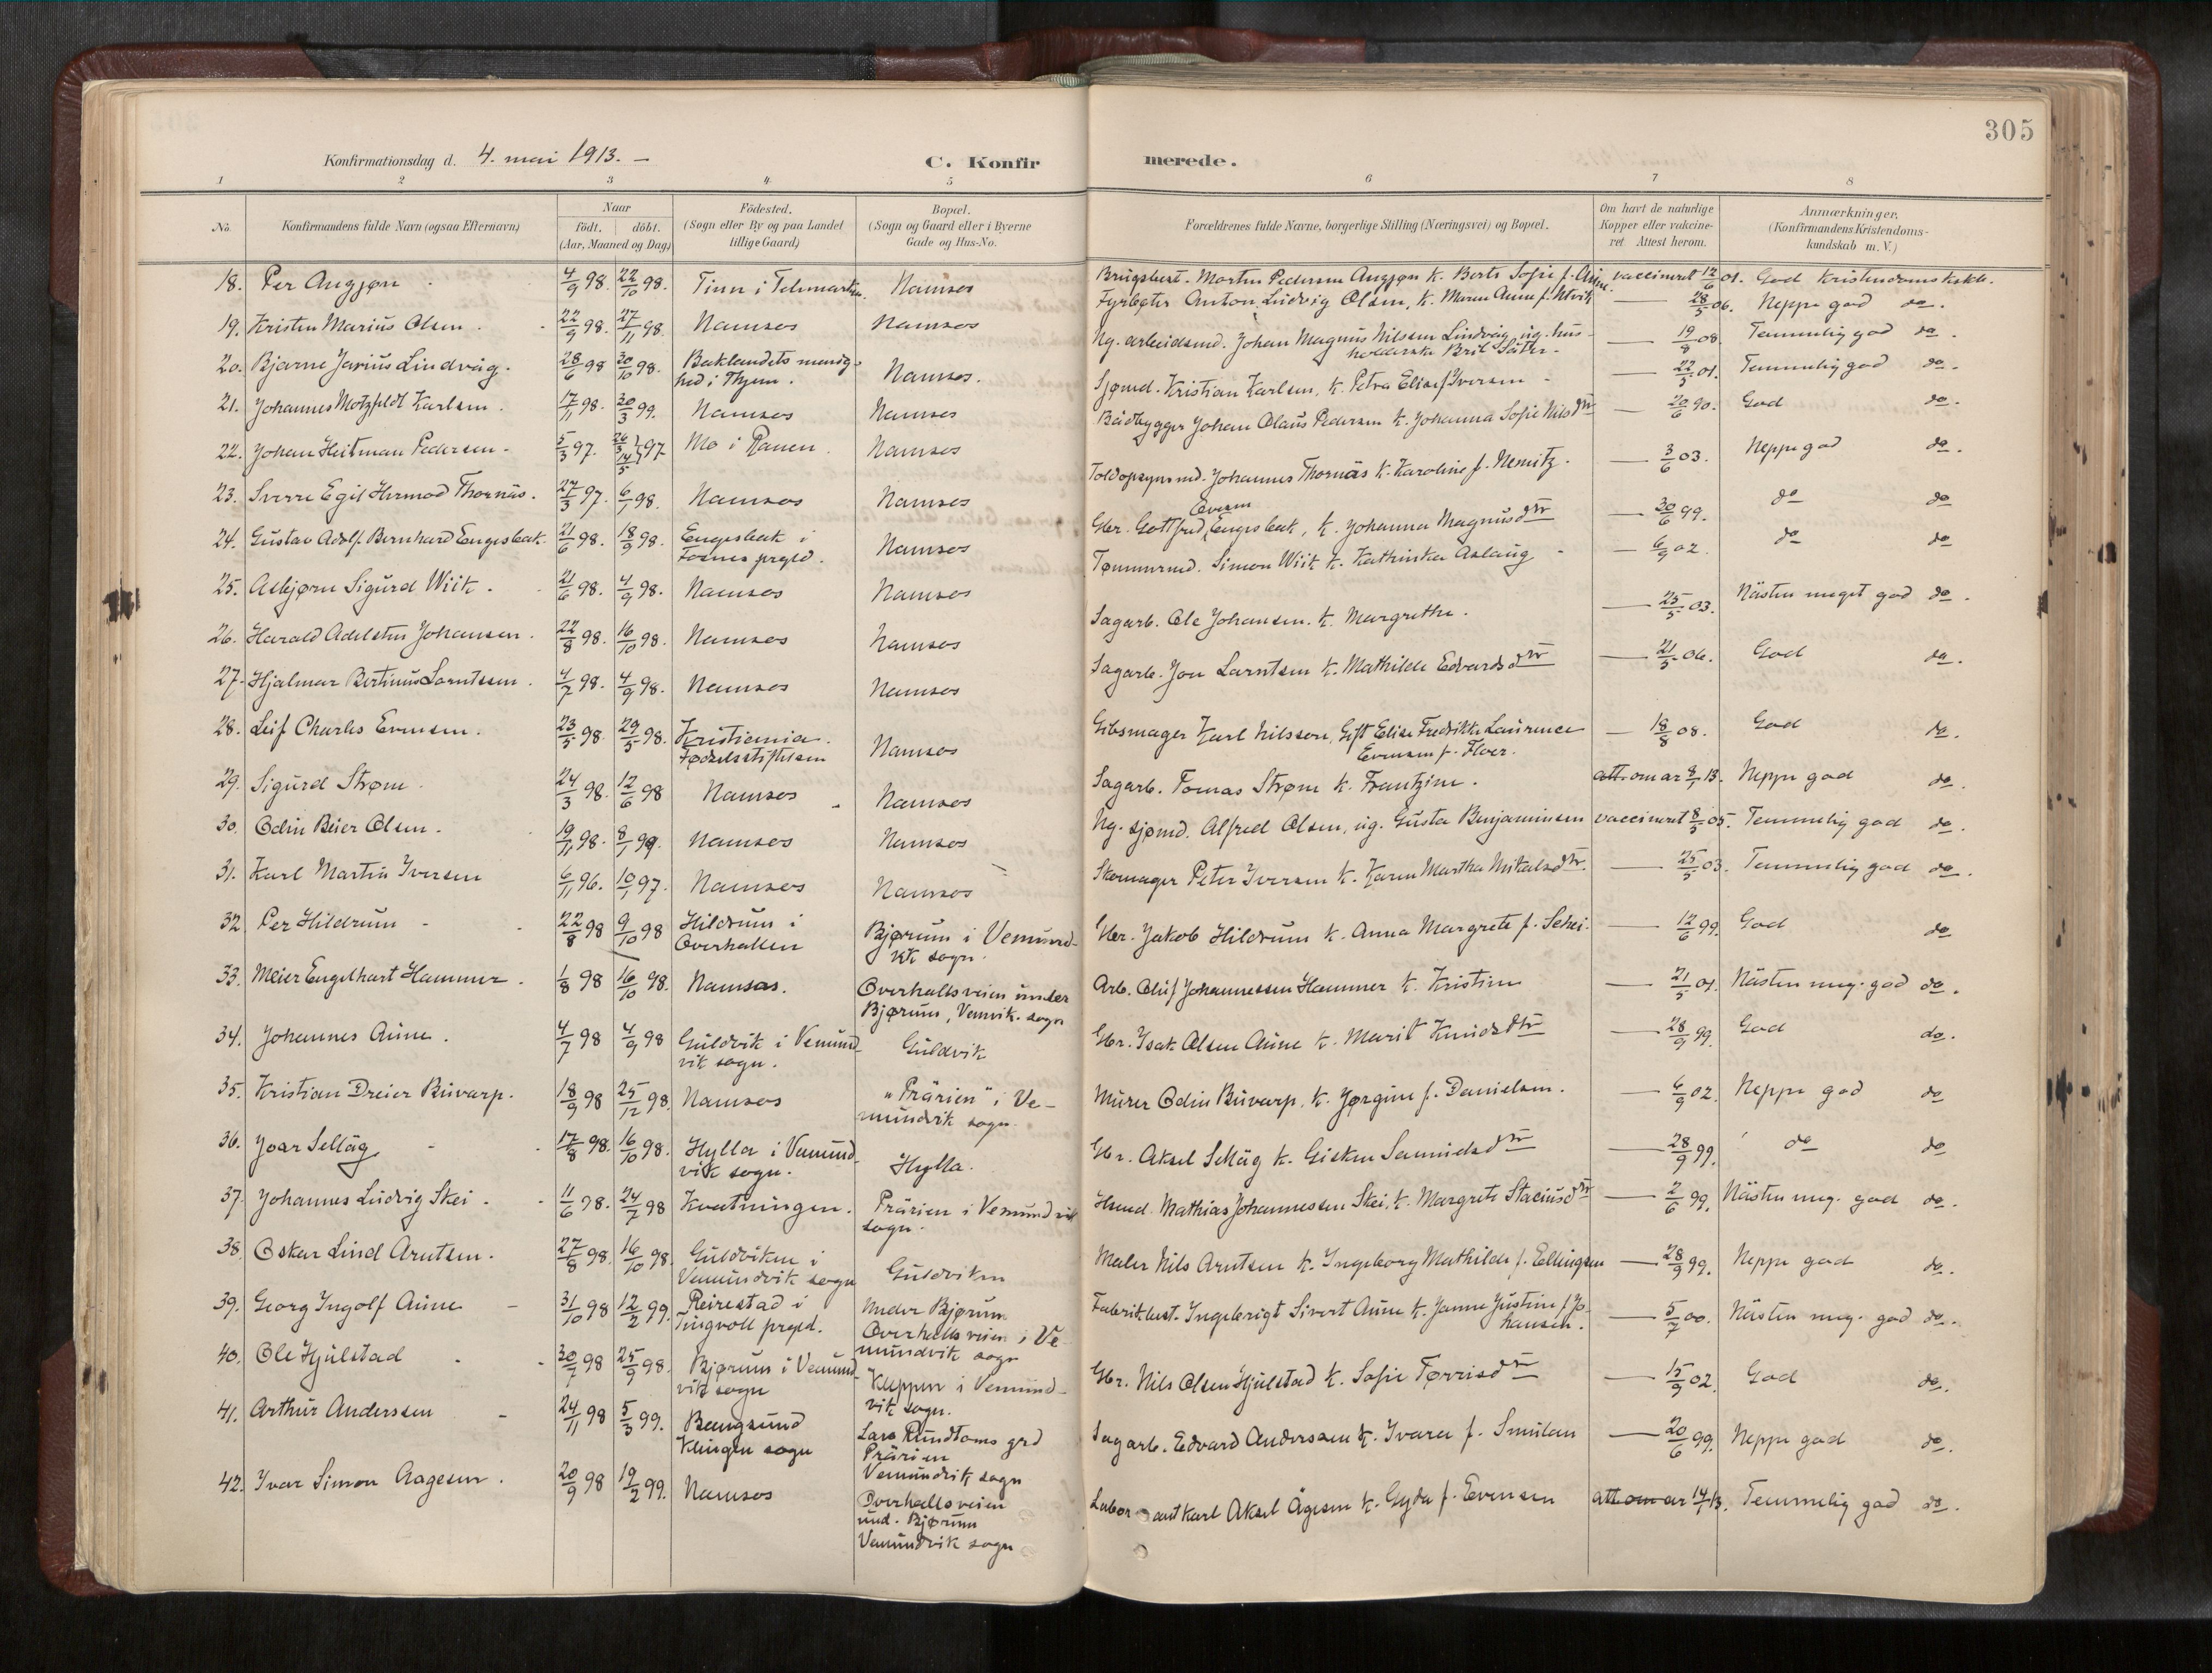 305
Konfirmationsdag d. 4. mai 1913. —
C. Konfir merede.
1 2 3 4. 5 6 7 8
No. Konfirmandens fulde Navn (ogsaa Efternavn) Naar födt. döbt. (Aar, Maaned og Dag) Födested. (Sogn eller By og paa Landet tillige Gaard) Bopæl. (Sogn og Gaard eller i Byerne Gade og Hus-No. Forældrenes fulde Navne, borgerlige Stilling (Næringsvei) og Bopæl. Om havt de naturlige Kopper eller vakcineret Attest herom. Anmærkninger. (Konfirmandens Kristendomskundskab m. V.)
18. Per Angjøn 4/9 98. 22/10 98. Tinn i Telemarken. Namsos Brugsbest. Morten Pedersen Angjøn k. Berte Sofie f. vaccineret 12/6 01. God Kristendomskskb.
19. Kristen Marius Olsen. 22/9 98. 27/11 98. Namsos Namsos Fyrbøter Anton Ludvig Olsen, k. Maren Anna f. Utvik — 28/5 06. Neppe god do.
20. Bjarne Jarius Lindvåg. 28/6 98 30/10 98. Baklandets menig-
hed i Thjem. Namsos. Ug. arbeidsmd. Johan Magnus Nilssen Lindvåg, ug. hus-
holderske Brit Säter. — 19/8 08. Temmelig god do.
21. Johannes Motzfeldt Karlsen. 17/11 98. 30/3 99. Namsos Namsos Sjømd. Kristian Karlsen, k. Petra Elise f. Iversen — 22/5 01. Temmelig god do.
22. Johan Heitman Pedersen. 5/3 97. 26/3 14/5 97 Mo i Ranen. Namsos Bådbygger Johan Olaus Pedersen k. Johanna Sofie Nilsdtr — 20/6 90. God do.
23. Sverre Egil Hermod Thornäs. 27/3 97. 6/1 98. Namsos Namsos Toldopsynsmd. Johannes Thornäs k. Karoline f. Nemitz. — 3/6 03. Neppe god do.
24. Gustav Adolf Bernhard Engesbak. 21/6 98. 18/9 98. Engesbak i
Fosnes prgld. Namsos Gbr. Gottfred Evensen Engesbak, k. Johanna Magnusdtr — 30/6 99. do do
25. Asbjørn Sigurd Wiik. 21/6 98. 4/9 98. Namsos Namsos Tømmermd. Simon Wiik k. Kathinka Aslaug — 6/9 02. do do
26. Harald Adelsten Johansen. 22/8 98. 16/10 98. Namsos Namsos Sagarb. Ole Johansen. k. Margrethe. — 25/5 03. Nästen meget god do.
27. Hjalmar Bertinus Larntsen. 4/7 98. 4/9 98. Namsos Namsos Sagarb. Jon Larntsen k. Mathilde Edvardsdtr — 21/5 06. God do.
28. Leif Charles Evensen. 23/5 98. 29/5 98. Kristiania.
Fødselsstiftelsen Namsos Gibsmager Karl Nilssen, Gift Elise Fredrikke Laurence
Evensen f. Floer. — 18/8 08. God do.
29. Sigurd Strøm 24/3 98. 12/6 98 Namsos Namsos Sagarb. Tomas Strøm k. Frantzine. att. om ar 8/1 13. Neppe god do.
30. Odin Beier Olsen. 19/11 98. 8/1 99. Namsos Namsos Ug. sjømd. Alfred Olsen, ug. Gusta Benjaminsen vaccineret 8/5 05. Temmelig god do.
31. Karl Martin Iversen 6/11 96. 10/1 97. Namsos Namsos Skomager Peter Iversen k. Karen Martha Mikalsdtr. — 25/5 03. Temmelig god do.
32. Per Hildrum 22/8 98 9/10 98 Hildrum i
Overhallen Bjørum i Vemund-
vk sogn. Gbr. Jakob Hildrum k. Anna Margrete f. Schei. — 12/6 99. God do
33. Meier Engelhart Hammer. 1/8 98 16/10 98. Namsos. Overhallsveien under
Bjørum, Vemvik. sogn Arb. Oluf Johannessen Hammer k. Kristine — 21/5 01. Nästen meg. god do.
34. Johannes Aune. 4/7 98 4/9 98 Guldvik i Vemund-
vik sogn. Guldvik Gbr. Isak Olsen Aune k. Marit Knudsdtr — 28/9 99. God do.
35. Kristian Dreier Buvarp. 18/9 98 25/12 98. Namsos "Prärien" i Ve-
mundvik sogn. Murer Odin Buvarp, k. Jørgine f. Danielsen. — 6/9 02. Neppe god do
36. Joar Selläg 17/8 98. 16/10 98. Hylla i Vemund-
vik sogn. Hylla. Gbr. Aksel Selläg k. Gisken dtr — 28/9 99. do do
37. Johannes Ludvig Skei. 11/6 98. 24/7 98 Kvatningen. Prärien i Vemundvik
sogn. Husmd. Mathias Johannessen Skei, k. Margrete Staciusdtr — 2/6 99. Nästen meg. god do.
38. Oskar Lind Arntsen. 27/8 98. 16/10 98. Guldviken i
Vemundvik sogn Guldviken Maler Nils Arntsen k. Ingeborg Mathilde f. Ellingsen — 28/9 99. Neppe god do.
39. Georg Ingolf Aune 31/10 98 12/2 99. Reirestad i
Tingvoll prgld. Under Bjørum
Overhallsveien i Ve-
mundvik sogn Fabrikbest. Ingebrigt Sivert Aune k. Janna Justine f. Jo-
hansen. — 5/7 00. Nästen meg. god do.
40. Ole Hjulstad 30/7 98 25/9 98. Bjørum i Vemund-
vik sogn Kleppen i Vemund-
vik sogn. Gbr. Nils Olsen Hjulstad k. Sofie Tørrisdtr — 15/9 02. God do.
41. Arthur Anderssen 24/11 98 5/3 99. Bangsund
Klingen sogn Lars Rundtoms grd
Prärien
Vemundvik sogn Sagarb. Edvard Anderssen k. Ivara f. Smulan — 20/6 99. Neppe god do.
42. Ivar Simon Aagesen. 20/9 98 19/2 99. Namsos Overhallsveien
und. Bjørum
Vemundvik sogn Laborant Karl Aksel Ågesen k. Gyda f. Evensen att. om ar 14/1 13. Temmelig god do.